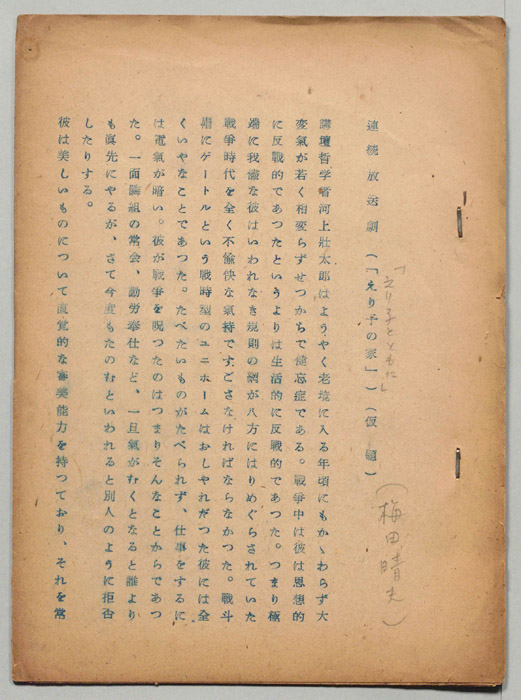 連続放送劇（「えり子の家」）（仮題）
「えり子とともに」
（梅田晴夫）
講壇哲学者河上壯太郎はようやく老境に入る年頃にもかゝわらず大
変氣が若く相変らずせつかちで健忘症である。戰爭中は彼は思想的
に反戰的であつたというよりは生活的に反戰的であつた。つまり極
端に我儘な彼はいわれなき規則の網が八方にはりめぐらされていた
戰爭時代を全く不愉快な氣持ですごさなければならなかつた。戰斗
帽にゲートルという戰時型のユニホームはおしやれだつた彼には全
くいやなことであつた。たべたいものがたべられず、仕事をするに
は電氣が暗い。彼が戰爭を呪つたのはつまりそんなことからであつ
た。一面隣組の常会、勤労奉仕など、一旦氣がむくとなると誰より
も眞先にやるが、さて今度もたのむといわれると別人のように拒否
したりする。
彼は美しいものについて直覚的な審美能力を持つており、それを常